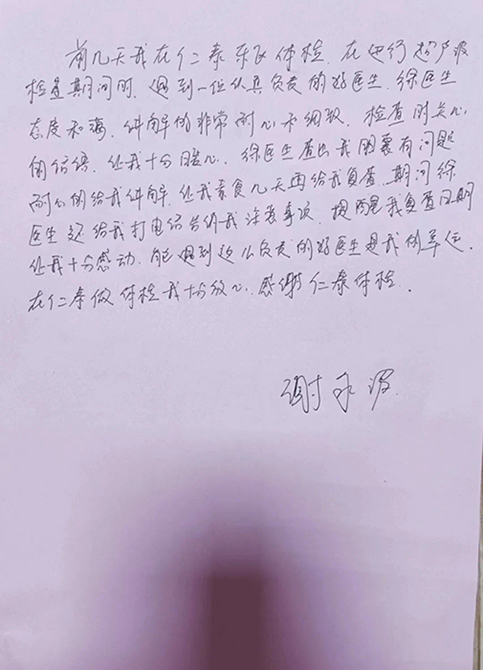 前几天我在仁泰东区体检,在进行超声波
检查期间时,遇到一位认真负责的好医生,徐医生
态度和蔼,讲解的非常耐心和细致,检查时关心
的话语,让我十分暖心,徐医生查出我胆囊有问题
耐心的给我讲解,让我素食几天再给我复查,期间徐
医生还给我打电话告诉我注意事项,提醒我复查日期
让我十分感动,能遇到这么负责的好医生是我的幸运.
在仁泰做体检我十分放心,感谢仁泰体检.
谢永波